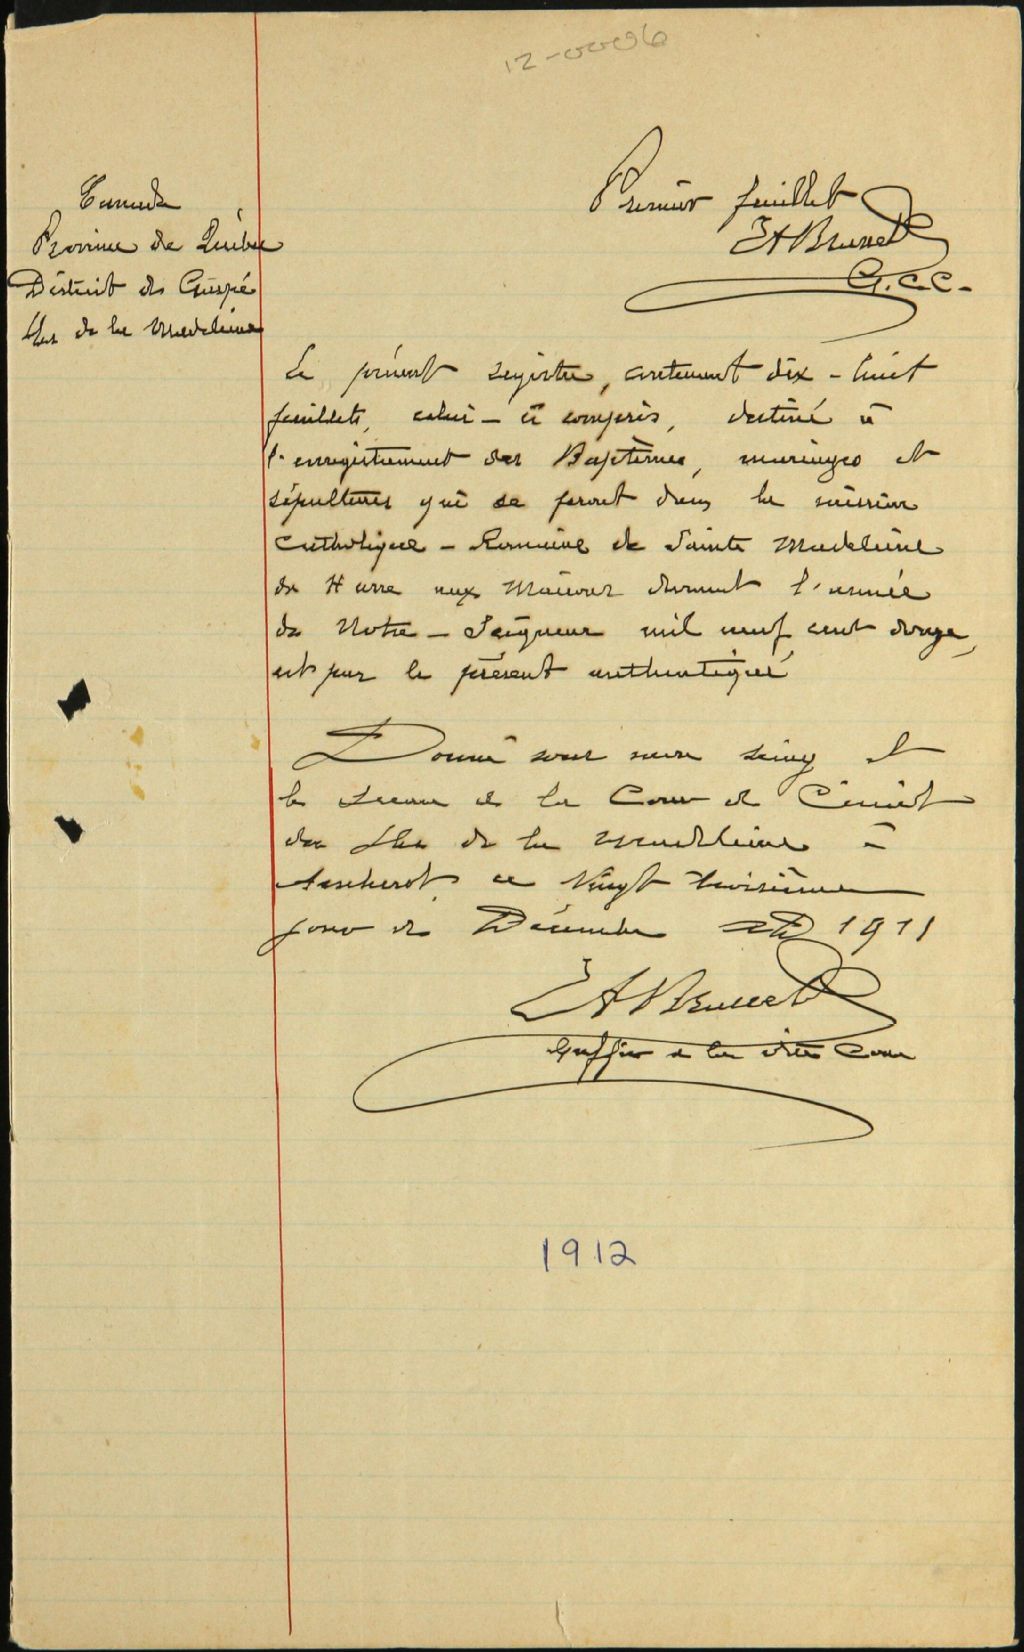 12-0096
Canada
Province de Québec
District de Gaspé
Iles de la Madeleine
Premier feuillet
G.C.C.
Le présent registre, contenant dix-huit
feuillets, celui-ci compris, destiné à
l'enregistrement des Baptêmes, mariages et
sépultures qui se feront dans la mission
Catholique-Romaine de Sainte Madeleine
de Havre aux Maisons durant l'année
de Notre-Seigneur mil neuf cent douze,
est par le présent authentiqué
Donné sous mon seing et
le sceau de la Cour de Circuit
des Iles de la Madeleine à
Amherst ce Vingt troisième
jour de Décembre AD 1911
Greffier de la dite Cour
1912